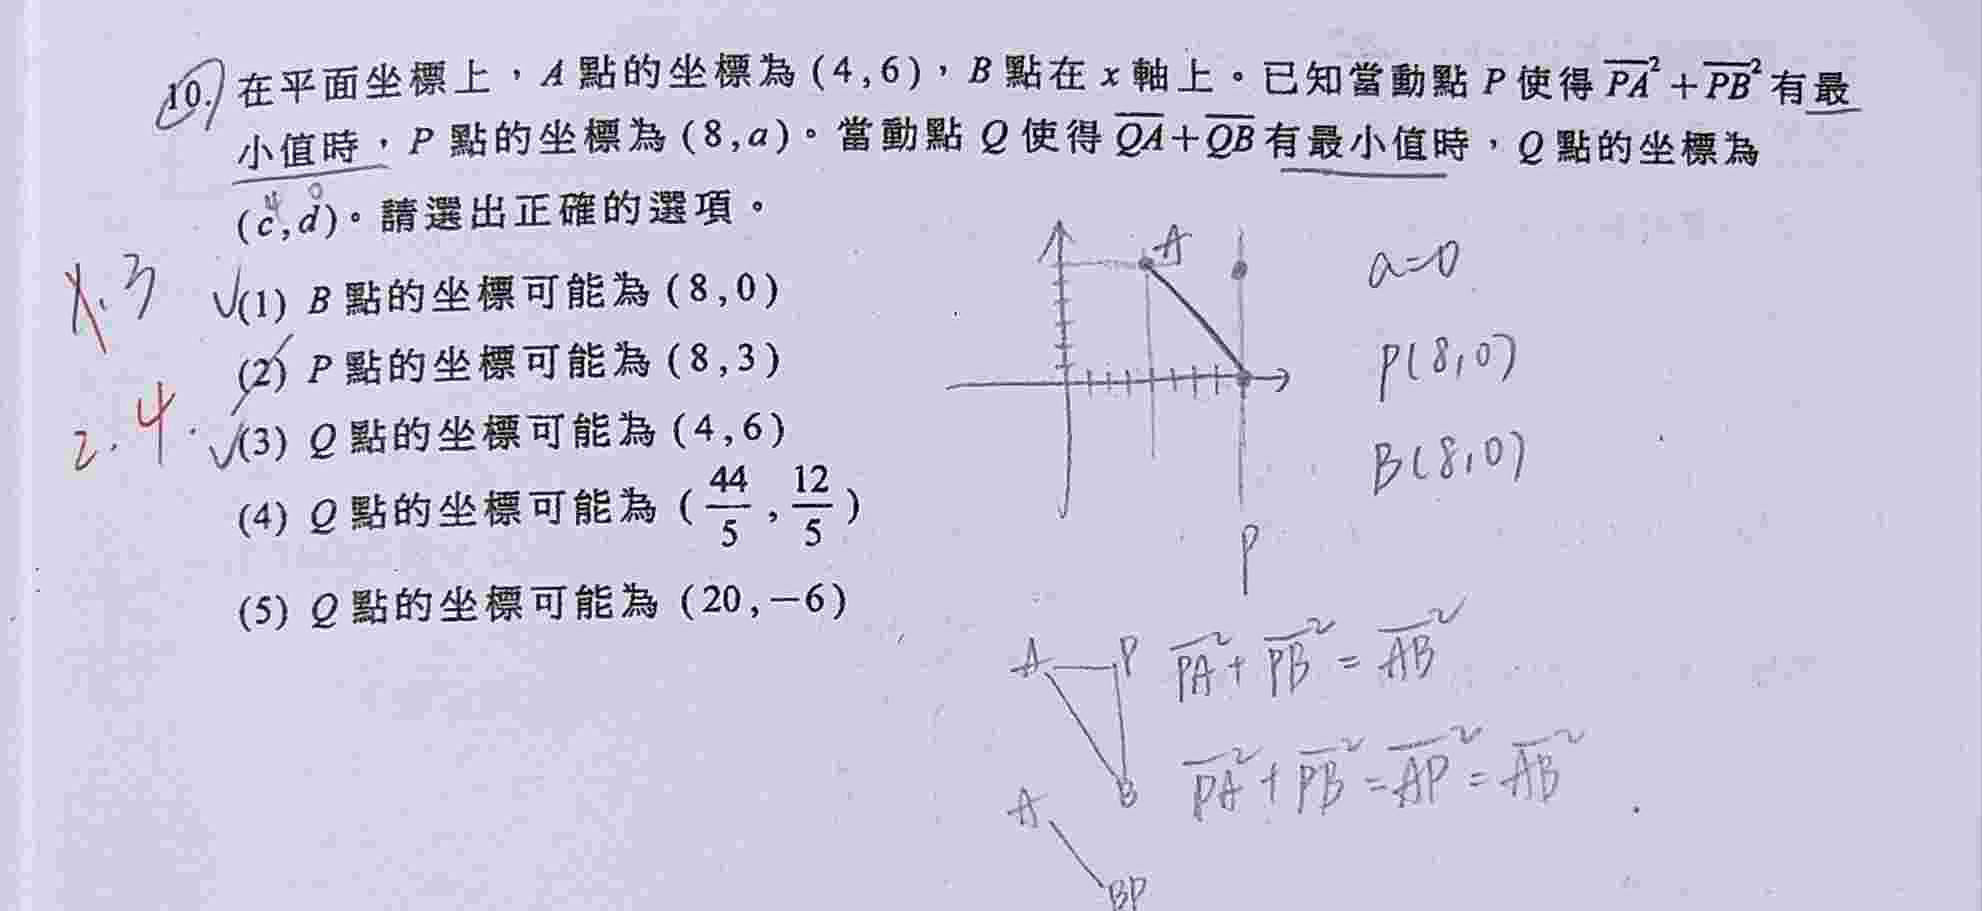 10. 在平面坐標上，A 點的坐標為 (4,6)，B 點在 x 軸上。已知當動點 P 使得 \overline{PA}^2+\overline{PB}^2 有最
小值時，P 點的坐標為 (8,a)。當動點 Q 使得 \overline{QA}+\overline{QB} 有最小值時，Q 點的坐標為
4 0
(c,d)。請選出正確的選項。
A
a=0
1. 3 ✓(1) B 點的坐標可能為 (8,0)
(2) P 點的坐標可能為 (8,3)
P(8,0)
2. 4. ✓(3) Q 點的坐標可能為 (4,6)
B(8,0)
(4) Q 點的坐標可能為 (44/5, 12/5)
P
(5) Q 點的坐標可能為 (20,−6)
A P \overline{PA}^2+\overline{PB}^2=\overline{AB}^2
B \overline{PA}^2+\overline{PB}^2=\overline{AP}^2=\overline{AB}^2
A
BP